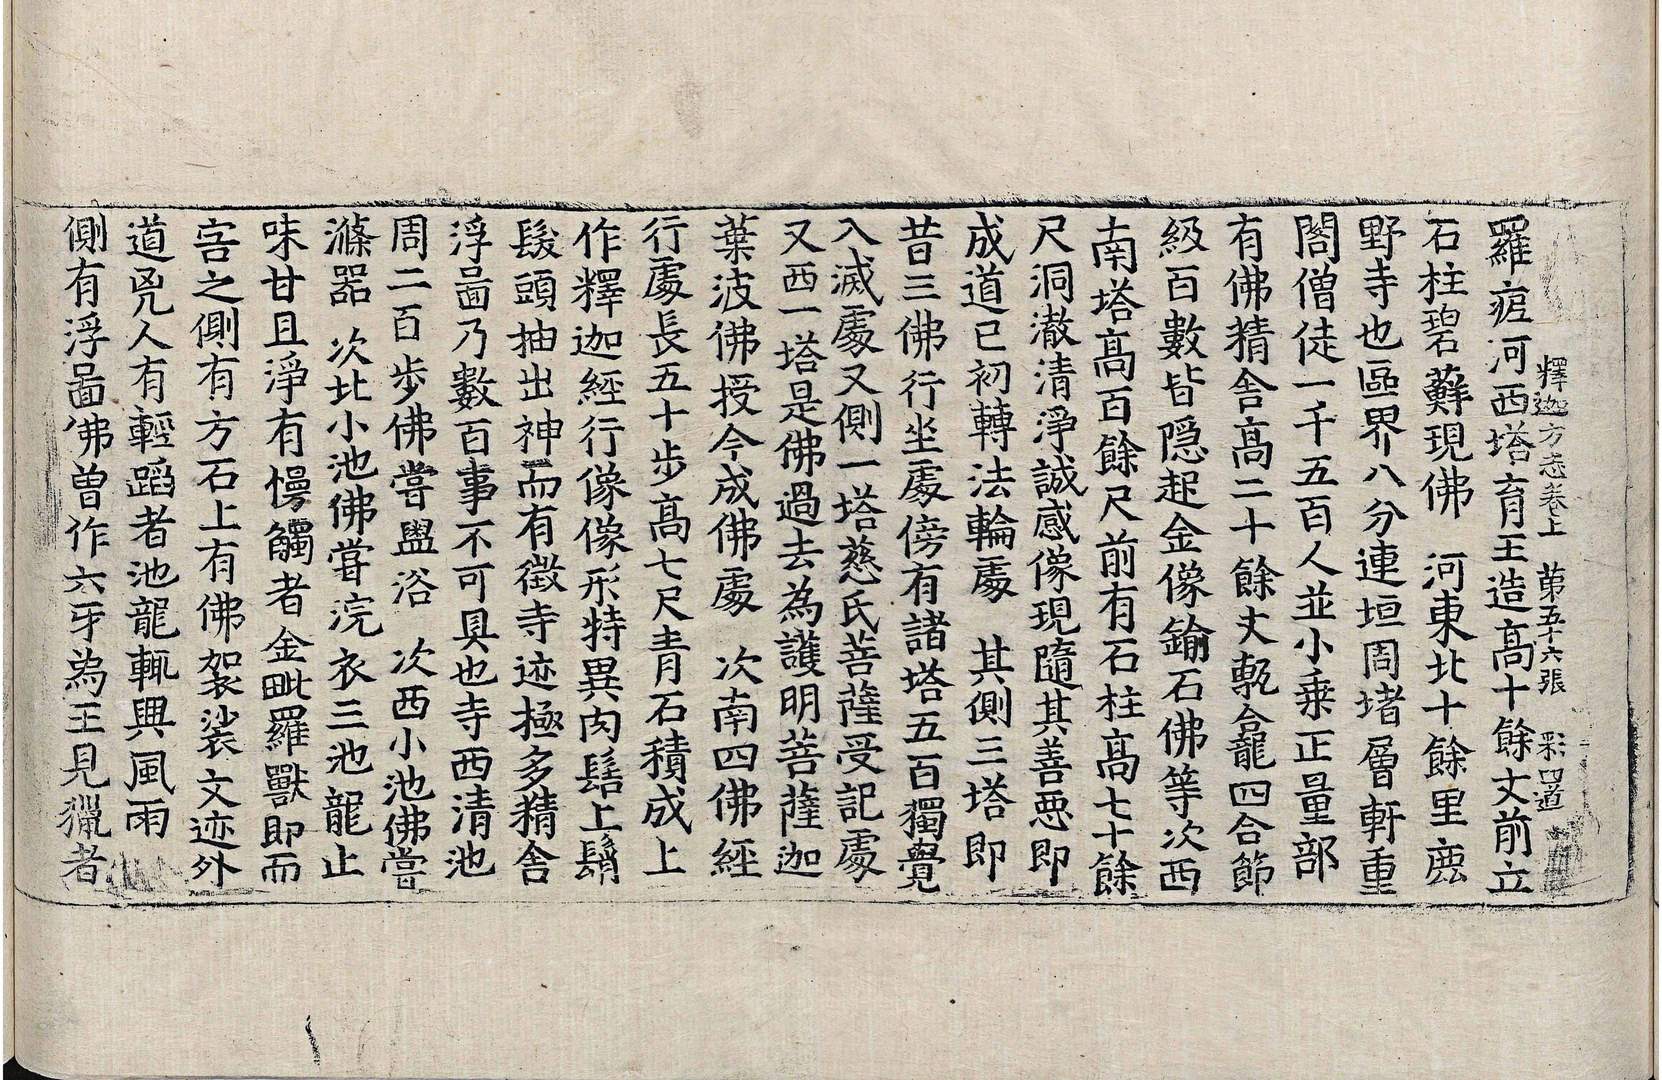 釋迦方志卷上 第五十六張 彩四道
羅疷河西塔育王造高十餘丈前立
石柱碧蘚現佛 河東北十餘里鹿
野寺也區界八分連垣周堵層軒重
閣僧徒一千五百人並小乘正量部
有佛精舍高二十餘丈甎龕四合節
級百數皆隠起金像鍮石佛等次西
南塔高百餘尺前有石柱高七十餘
尺洞澈清淨誠感像現隨其善惡即
成道已初轉法輪處 其側三塔即
昔三佛行坐處傍有諸塔五百獨覺
入滅處又側一塔慈氏菩薩受記處
又西一塔是佛過去為護明菩薩迦
葉波佛授今成佛處 次南四佛經
行處長五十步高七尺青石積成上
作釋迦經行像像形特異肉髻上鬚
髮頭抽出神而有徵寺迹極多精舍
浮啚乃數百事不可具也寺西清池
周二百步佛嘗盥浴 次西小池佛嘗
滌器 次北小池佛嘗浣衣三池龍止
味甘且淨有慢觸者金毗羅獸即而
害之側有方石上有佛袈裟文迹外
道兇人有輕蹈者池龍輒興風雨
側有浮啚佛曽作六牙為王見獵者